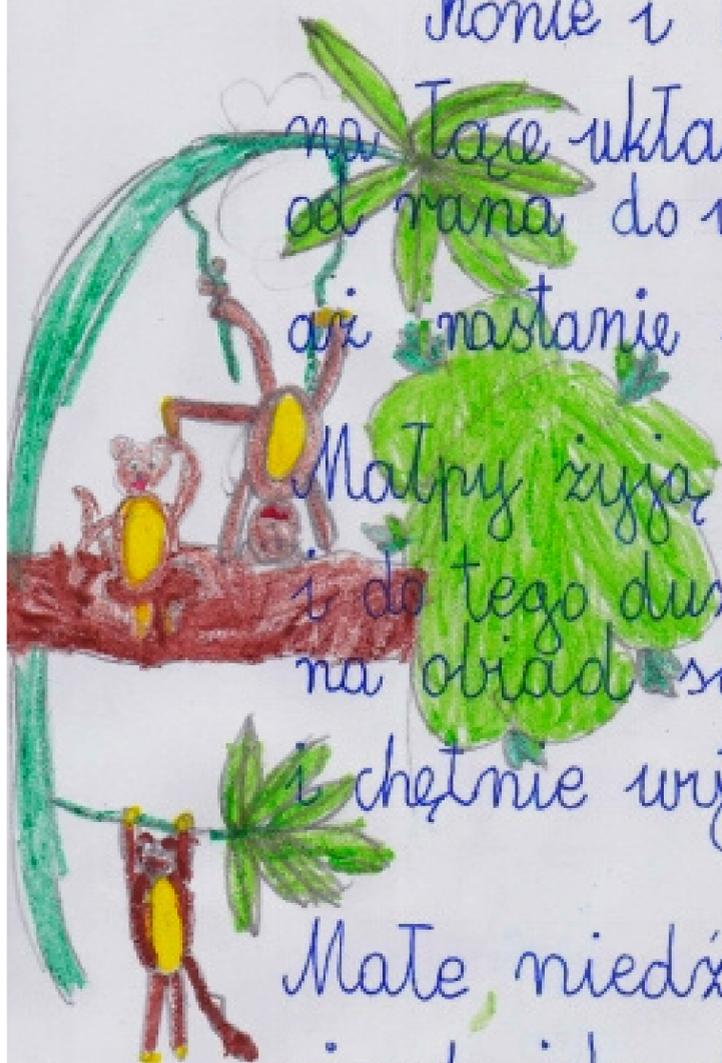 Konie i
na łące ukła
od rana do
aż nastanie
Małpy żyją
i do tego du
na obiad s
i chętnie wy
Małe niedź